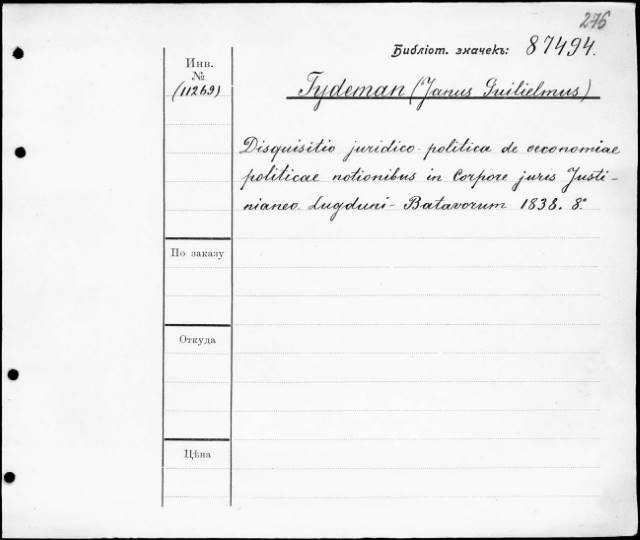 276
Библіот. значекъ: 87494.
Инв.
№
(11269)
Tydeman (Janus Guilielmus)
Disquisitio juridico-politica de oeconomiae
politicae notionibus in Corpore juris Justi-
nianeo. Lugduni-Batavorum 1838. 8°.
По заказу
Откуда
Цѣна